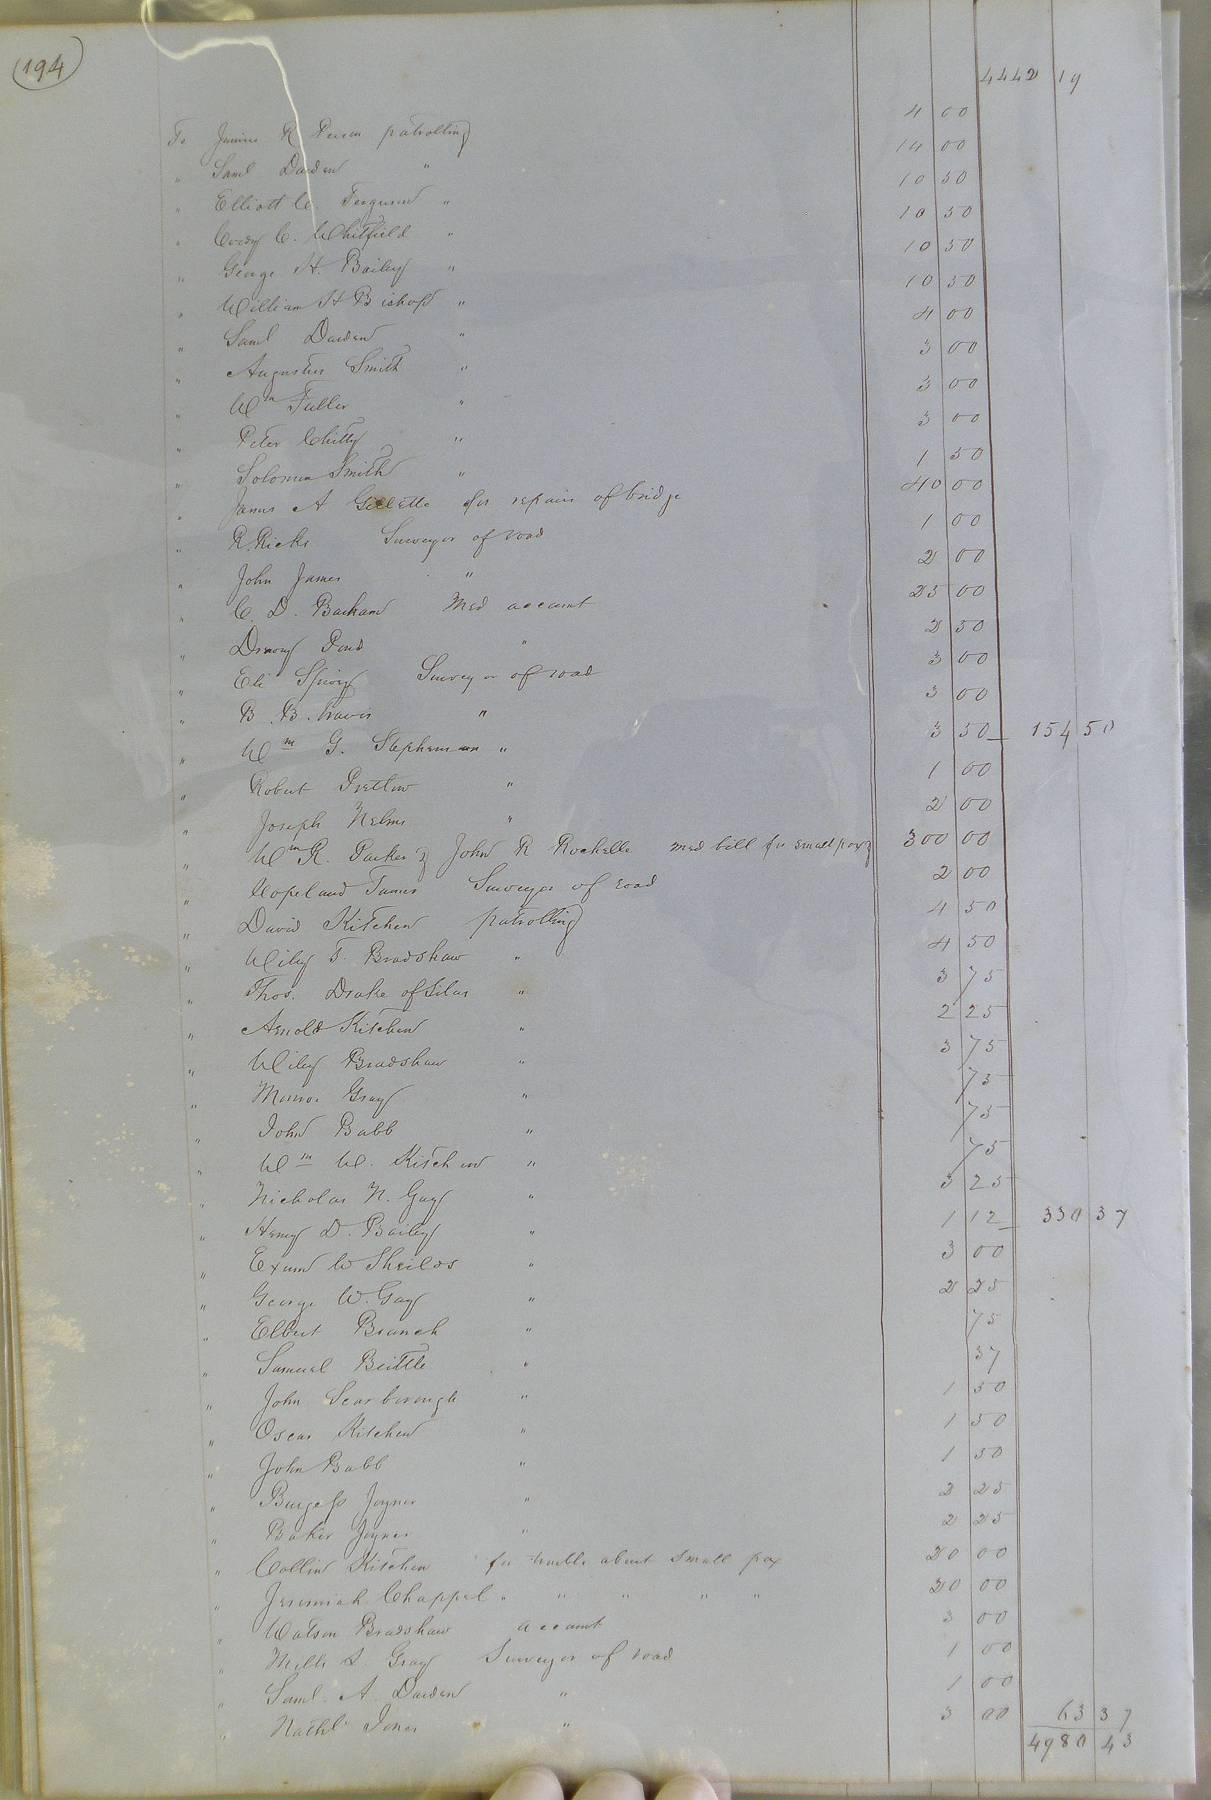 (194)
4442 19
To Junius R Person patrolling 4 00
" Saml Darden " 14 00
" Elliott C. Ferguson " 10 50
" Cordy C. Whitfield " 10 50
" George H. Bailey " 10 50
" William H Bishop " 10 50
" Saml Darden " 4 00
" Augustus Smith " 3 00
" Wm Fuller " 3 00
" Peter Chitty " 3 00
" Solomon Smith " 1 50
" James A Gillette for repairs of bridge 40 00
" R. Ricks Surveyor of road 1 00
" John James " 2 00
" C. D. Barham Med account 25 00
" Drewry Pond " 2 50
" Eli Spivey Surveyor of road 3 00
" B. B. Travis " 3 00
" Wm G. Stephenson " 3 50 154 50
" Robert Pretlow " 1 00
" Joseph Nelms " 2 00
" Wm R. Parker & John R Rochelle med bill for small pox 300 00
" Copeland James Surveyor of road 2 00
" David Kitchen patrolling 4 50
" Wiley T. Bradshaw " 4 50
" Thos. Drake of Silas " 3 75
" Arnold Kitchen " 2 25
" Wiley Bradshaw " 3 75
" Monroe Gray " 75
" John Babb " 75
" Wm W. Kitchen " 75
" Nicholas N. Gay " 3 25
" Henry D. Bailey " 1 12 330 37
" Exum W Sheilds " 3 00
" George W. Gay " 2 25
" Elbert Branch " 75
" Samuel Brittle " 37
" John Scarborough " 1 50
" Oscar Kitchen " 1 50
" John Babb " 1 50
" Burgess Joyner " 2 25
" Baker Joyner " 2 25
" Collin Kitchen for trouble about small pox 20 00
" Jeremiah Chappel " " " " " 20 00
" Watson Bradshaw account 3 00
" Mills S. Gray Surveyor of road 1 00
" Saml. A. Darden " 1 00
" Nathl. Jones " 3 00 63 37
4980 43